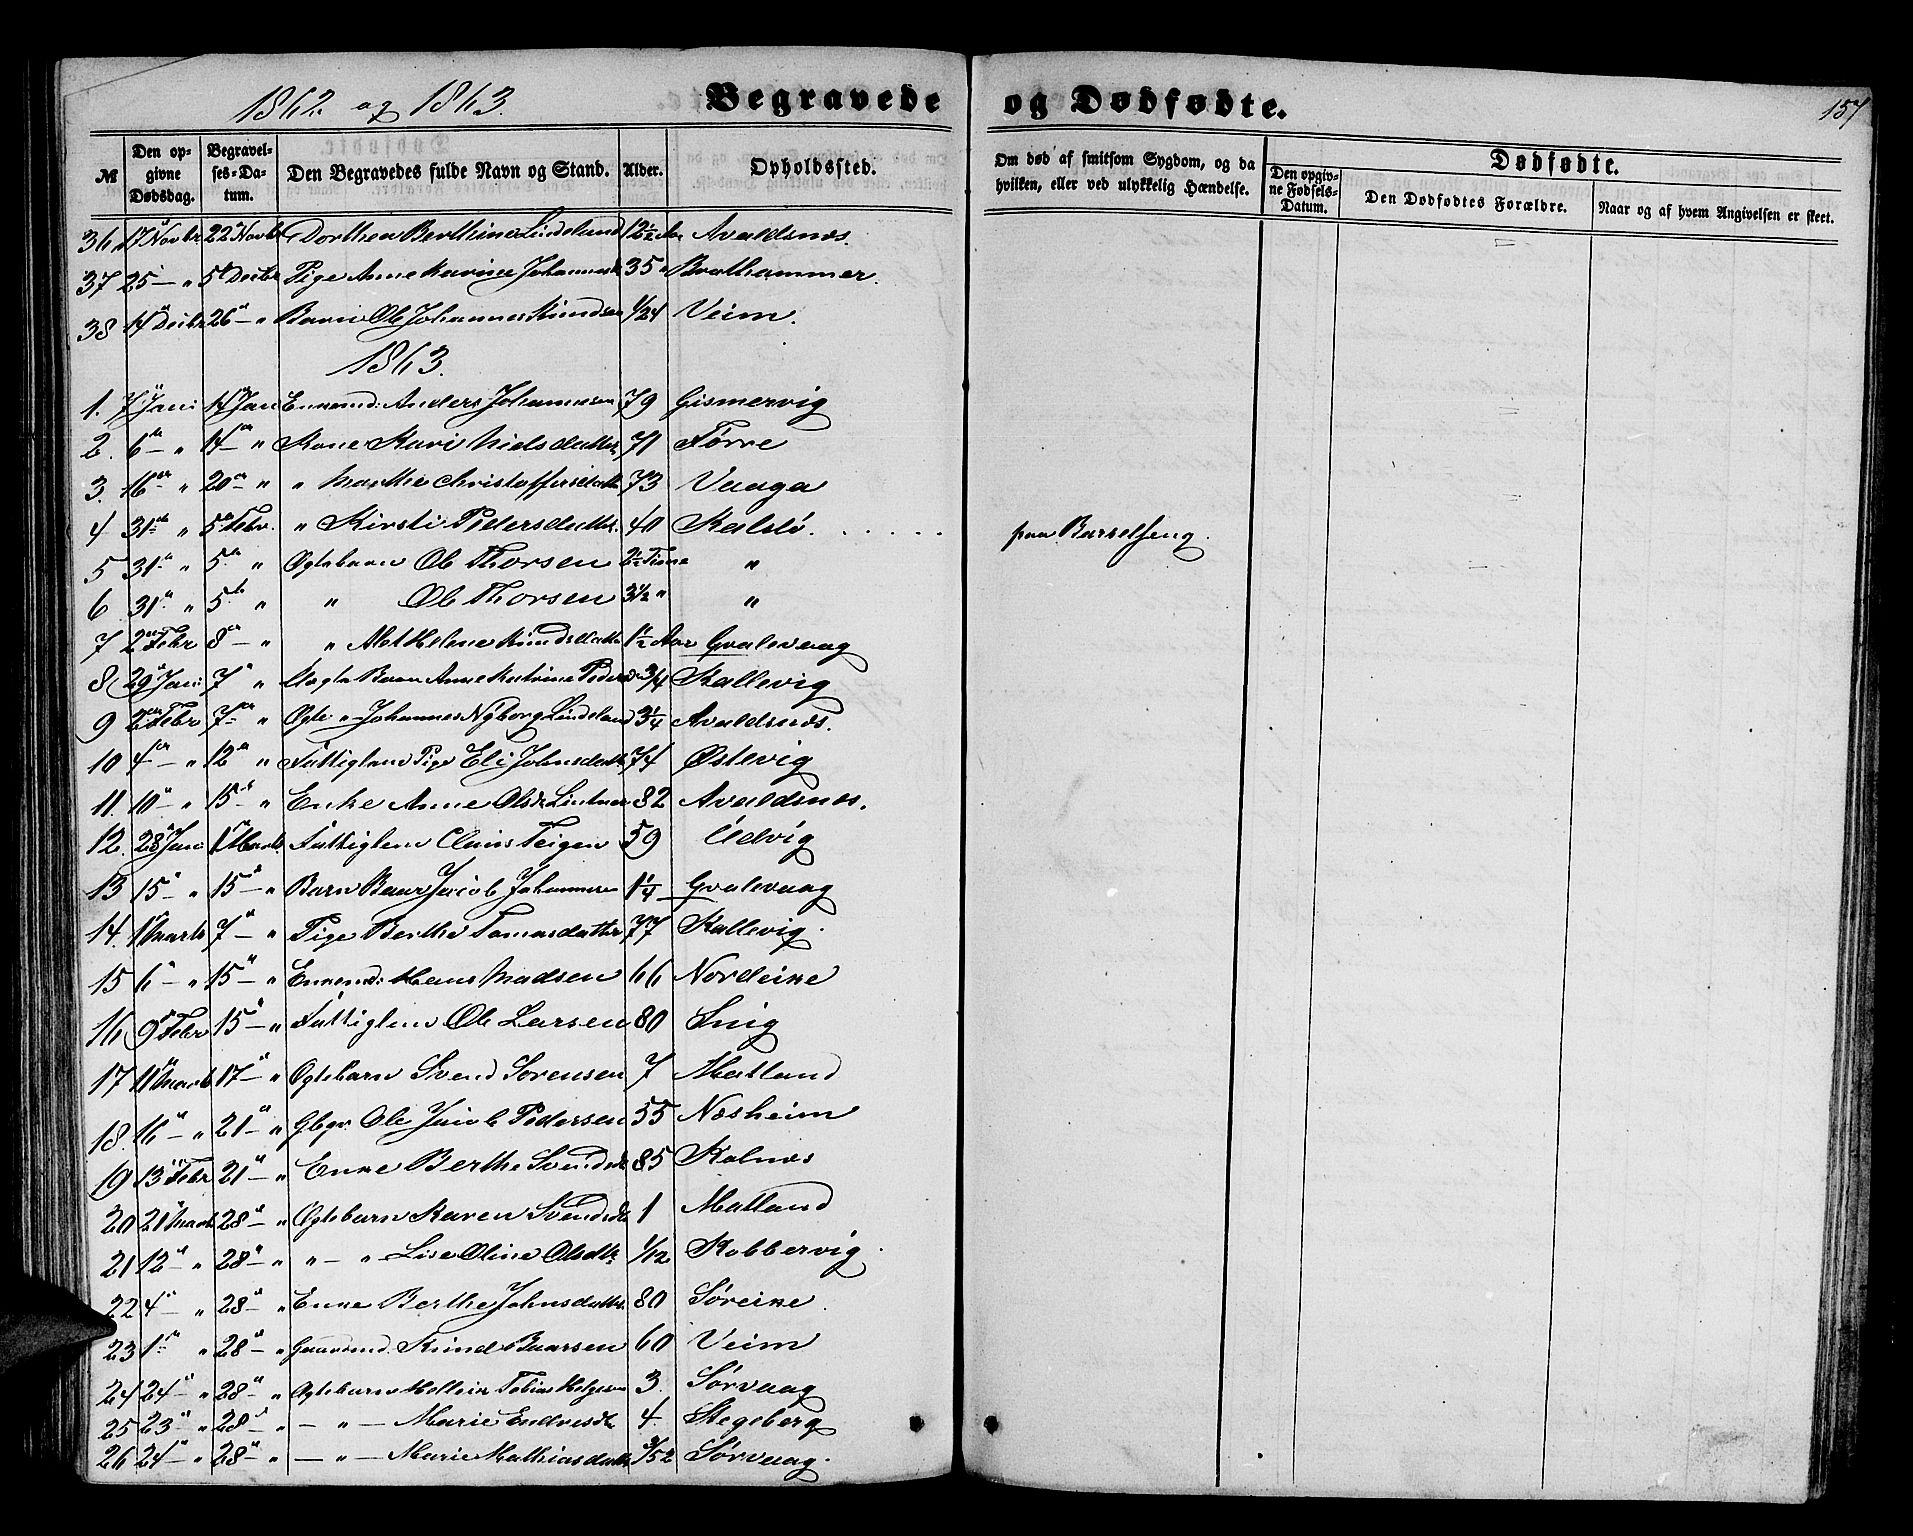 1862 og 1863.
Begravede og Dødfødte.
157
№
Den opgivne Dødsdag.
Begravelses-Datum.
Den Begravedes fulde Navn og Stand.
Alder.
Opholdssted.
Om død af smitsom Sygdom, og da hvilken, eller ved ulykkelig Hændelse.
Dødfødte.
Den opgivne Fødsels-Datum.
Den Dødfødtes Forældre.
Naar og af hvem Angivelsen er skeet.
36 17 Novbr 22 Novbr Dorthea Berthine Lindeland 12½ Aar Avaldsnæs.
37 25 — " 5te Decbr Pige Anne Karine Johannesd 35 " Brathammer.
38 14 Decbr 26 — " Barn Ole Johannes Knudsen 1/24 Veim.
1863.
1. 7 Jan 14 Jan Enkemd: Anders Johannesen 79 Gismervig
2. 6 — " 14 — " Kone Kari Nielsdatter 71 Førre
3. 16 " 20 — " " Marthe Christoffersdatter 73 Vaaga
4 31 " 5 Febr. " Kirsti Pedersdatter. 40 Kalstø . . . . . paa Barselseng.
5 31 " 5 " Ægtebarn Ole Thorsen 2½ Time "
6 31 " " 5 " " Ole Thorsen 3½ " "
7 2 Febr 8 — " " Helene Knudsdatter 1½ Aar Gvalevaag
8 29 Jan 7 " Uægte Barn Anne Katrine Peders 3/4 Kallevig
9 2 Febr 7 — " Ægte " Johannes Nyborg Lindeland 3¼ Avaldsnæs.
10 4 — " 12 " Fattiglem Pige Eli Johnsdatter 74 Østevig
11. 10 — " 15 — " Enke Anne Olsdr 82 Avaldsnæs.
12. 28 Jan 1 Marts. Fattiglem Claus Teigen 59 Udvig
13 15 " 15 — " Barn Baar Jacob Johannesen 1¼ Gvalevaag
14. 1 Marts 7 — " Pige Berthe Tomasdatter 77 Kallevig.
15 6 — " 15 — " Enkemd: Hans Madsen 66 Nordeike
16 9 Febr 15 — " Fattiglem Ole Larsen 80 Snig
17 11 Marts 17 — " Ægtebarn Svend Sørensen 7 Matland
18. 16 — " 21 — " Gbgr. Ole Jacob Pedersen 55 Næsheim
19 13 Febr 21 — " Enke Berthe Svendsd 85 Kolnæs
20 21 Marts 28 — " Ægtebarn Karen Svendsdtr 1 Matland
21 12 — " 28 — " " — " Lise Oline Olsdtr 1/12 Kobbervig.
22 4 — " 28 — " Enke Berthe Johnsdatter. 80 Søreike.
23 1 — " 28 — " Gaardmd. Knud Baarsen 60 Veim
24 24 — " 28 — " Ægtebarn Tobias Helgesen 3. Sørvaag
25 23 — " 28 — " — " — Marie Endresdtr 4. Stegeberg
26 24 — " 28 — " — " — Marie Mathiasdatter /52 Sørvaag.